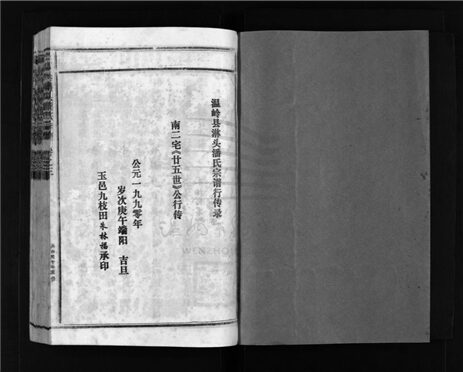 温岭县淋头潘氏宗谱行传录
南二宅《廿五世》公行传
公元一九九零年
岁次庚午端阳 吉旦
玉邑九枝田 朱林福 承印